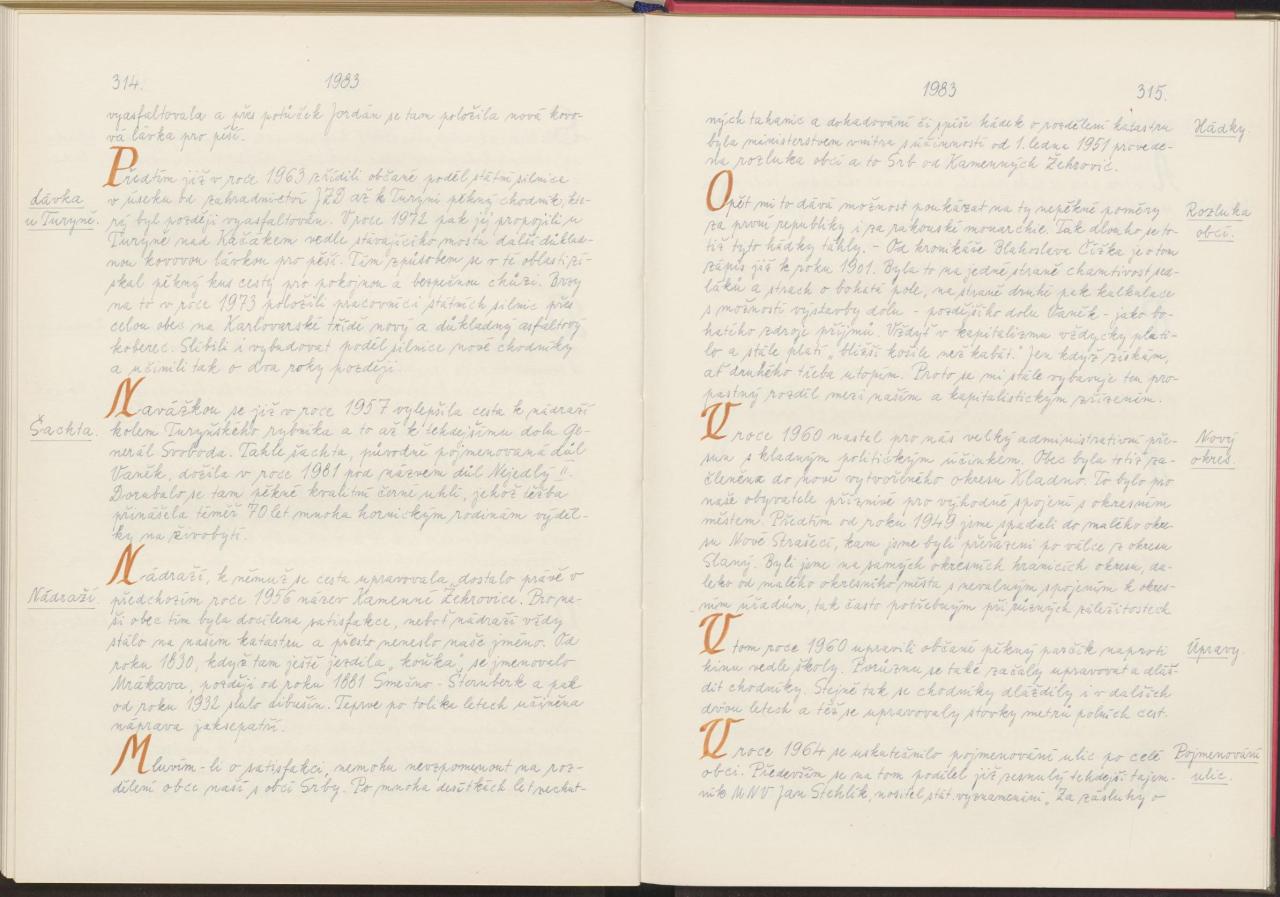 314.
1983
vyasfaltovala a přes potůček Jordán se tam položila nová kovo-
vá lávka pro pěší.
Předtím již v roce 1963 zřídili občané podél státní silnice
lávka
v úseku od zahradnictví JZD až k Turyni pěkný chodník, kte-
u Turyně.
rý byl později vyasfaltován. V roce 1972 pak jej propojili u
Turyně nad Kačákem vedle stávajícího mostu další důklad-
nou kovovou lávkou pro pěší. Tím způsobem se v té oblasti zí-
skal pěkný kus cesty pro pokojnou a bezpečnou chůzi. Brzy
na to v roce 1973 položili pracovníci státních silnic přes
celou obec na Karlovarské třídě nový a důkladný asfaltový
koberec. Slíbili i vybudovat podél silnice nové chodníky
a učinili tak o dva roky později.
Navážkou se již v roce 1957 vylepšila cesta k nádraží
Šachta.
kolem Turyňského rybníka a to až k tehdejšímu dolu Ge-
nerál Svoboda. Tahle šachta, původně pojmenovaná důl
Vaněk, dožila v roce 1981 pod názvem důl Nejedlý II.
Dorubalo se tam pěkně kvalitní černé uhlí, jehož těžba
přinášela téměř 70 let mnoha hornickým rodinám výděl-
ky na živobytí.
Nádraží, k němuž se cesta upravovala, dostalo právě v
Nádraží.
předchozím roce 1956 název Kamenné Žehrovice. Pro na-
ši obec tím byla docílena satisfakce, neboť nádraží vždy
stálo na našem katastru a přesto neneslo naše jméno. Od
roku 1830, když tam ještě jezdila „koňka", se jmenovalo
Mrákava, později od roku 1881 Smečno - Šternberk a pak
od roku 1932 slulo Libušín. Teprve po tolika letech učiněna
náprava jaksepatří.
Mluvím-li o satisfakci, nemohu nevzpomenout na roz-
dělení obce naší s obcí Srby. Po mnoha desítkách let nechut-
1983
315.
ných tahanic a dohadování či spíše hádek o rozdělení katastru
Hádky
byla ministerstvem vnitra s účinností od 1. ledna 1951 provede-
na rozluka obcí a to Srb od Kamenných Žehrovic.
Opět mi to dává možnost poukázat na ty nepěkné poměry
Rozluka
za první republiky i za rakouské monarchie. Tak dlouho se to-
obcí.
tiž tyto hádky táhly. - Od kronikáře Blahoslava Čížka je o tom
zápis již k roku 1901. Byla to na jedné straně chamtivost sed-
láků a strach o bohatá pole, na straně druhé pak kalkulace
s možností výstavby dolu - pozdějšího dolu Vaněk - jako bo-
hatého zdroje příjmů. Vždyť v kapitalizmu vždycky plati-
lo a stále platí „bližší košile než kabát." Jen když získám,
ať druhého třeba utopím. Proto se mi stále vybavuje ten pro-
pastný rozdíl mezi naším a kapitalistickým zřízením.
V roce 1960 nastal pro nás velký administrativní pře-
Nový
sun s kladným politickým účinkem. Obec byla totiž za-
okres.
členěna do nově vytvořeného okresu Kladno. To bylo pro
naše obyvatele příznivé pro výhodné spojení s okresním
městem. Předtím od roku 1949 jsme spadali do malého okre-
su Nové Strašecí, kam jsme byli přeřazeni po válce z okresu
Slaný. Byli jsme na samých okresních hranicích okresu, da-
leko od malého okresního města s nevalným spojením k okres-
ním úřadům, tak často potřebným při různých záležitostech
V tom roce 1960 upravili občané pěkný parčík naproti
Úpravy.
kinu vedle školy. Porůznu se také začaly upravovat a dláž-
dit chodníky. Stejně tak se chodníky dláždily i v dalších
dvou letech a též se upravovaly stovky metrů polních cest.
V roce 1964 se uskutečnilo pojmenování ulic po celé
Pojmenování
obci. Především se na tom podílel již zesnulý tehdejší tajem-
ulic.
ník MNV Jan Stehlík, nositel stát. vyznamenání „Za zásluhy o